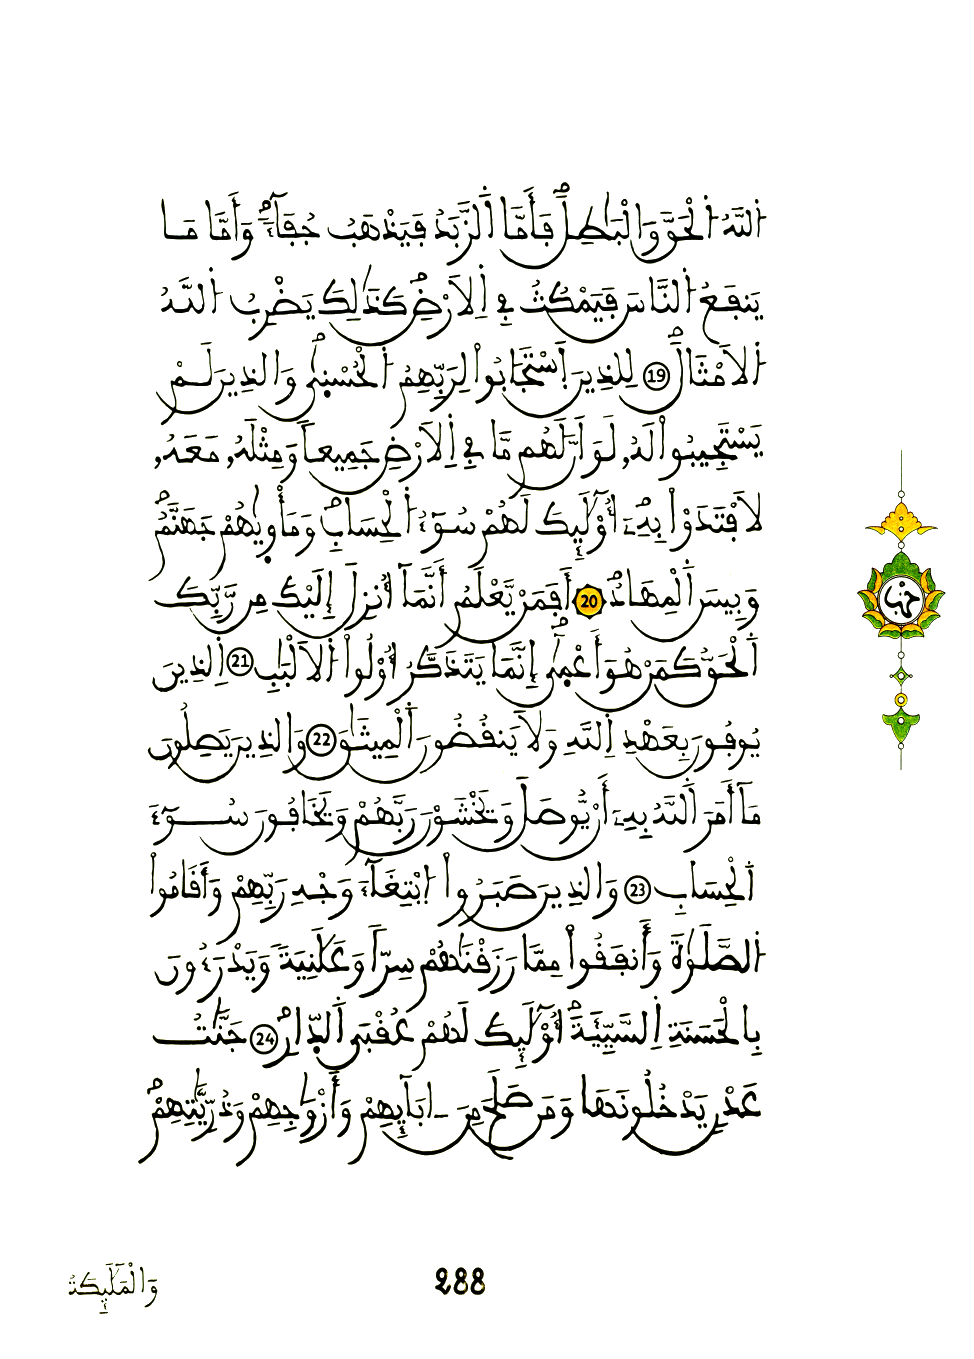 اُللَّهُ اُلْحَقَّ وَالْبَٰطِلَۖ فَأَمَّا اَلزَّبَدُ فَيَذْهَبُ جُفَآءٗۖ وَأَمَّا مَا
يَنفَعُ اُلنَّاسَ فَيَمْكُثُ فِے اِلَارْضِۖ كَذَٰلِكَ يَضْرِبُ اُللَّهُ
اُلَامْثَالَۖ 19 لِلذِينَ اَسْتَجَابُواْ لِرَبِّهِمُ اُلْحُسْنَىٰۖ وَالذِينَ لَمْ
يَسْتَجِيبُواْ لَهُۥ لَوَ اَنَّ لَهُم مَّا فِے اِلَارْضِ جَمِيعاٗ وَمِثْلَهُۥ مَعَهُۥ
لَافْتَدَوْاْ بِهِۦٓۖ أُوْلَٰٓئِكَ لَهُمْ سُوٓءُ اُلْحِسَابِۖ وَمَأْوٜيٰهُمْ جَهَنَّمُۖ
وَبِيسَ اَلْمِهَادُۖ 20 أَفَمَنْ يَّعْلَمُ أَنَّمَآ أُنزِلَ إِلَيْكَ مِن رَّبِّكَ
اَلْحَقُّ كَمَنْ هُوَ أَعْمٜىٰٓۖ إِنَّمَا يَتَذَكَّرُ أُوْلُواْ اُلَالْبَٰبِ 21 اِلذِينَ
يُوفُونَ بِعَهْدِ اِللَّهِ وَلَا يَنقُضُونَ اَلْمِيثَٰقَ 22 وَالذِينَ يَصِلُونَ
مَآ أَمَرَ اَللَّهُ بِهِۦٓ أَنْ يُّوصَلَ وَيَخْشَوْنَ رَبَّهُمْ وَيَخَافُونَ سُوٓءَ
اَلْحِسَابِ 23 وَالذِينَ صَبَرُواْ اُبْتِغَآءَ وَجْهِ رَبِّهِمْ وَأَقَامُواْ
اُلصَّلَوٰةَ وَأَنفَقُواْ مِمَّا رَزَقْنَٰهُمْ سِرّاٗ وَعَلَٰنِيَةٗ وَيَدْرَءُونَ
بِالْحَسَنَةِ اِلسَّيِّئَةَۖ أُوْلَٰٓئِكَ لَهُمْ عُقْبَى اَلدّٜارِۖ 24 جَنَّٰتُ
عَدْنٖ يَدْخُلُونَهَا وَمَن صَلَحَ مِنَ اٰبَآئِهِمْ وَأَزْوَٰجِهِمْ وَذُرِّيَّٰتِهِمْۖ
حزب
288
وَالْمَلَٰٓئِكَةُ